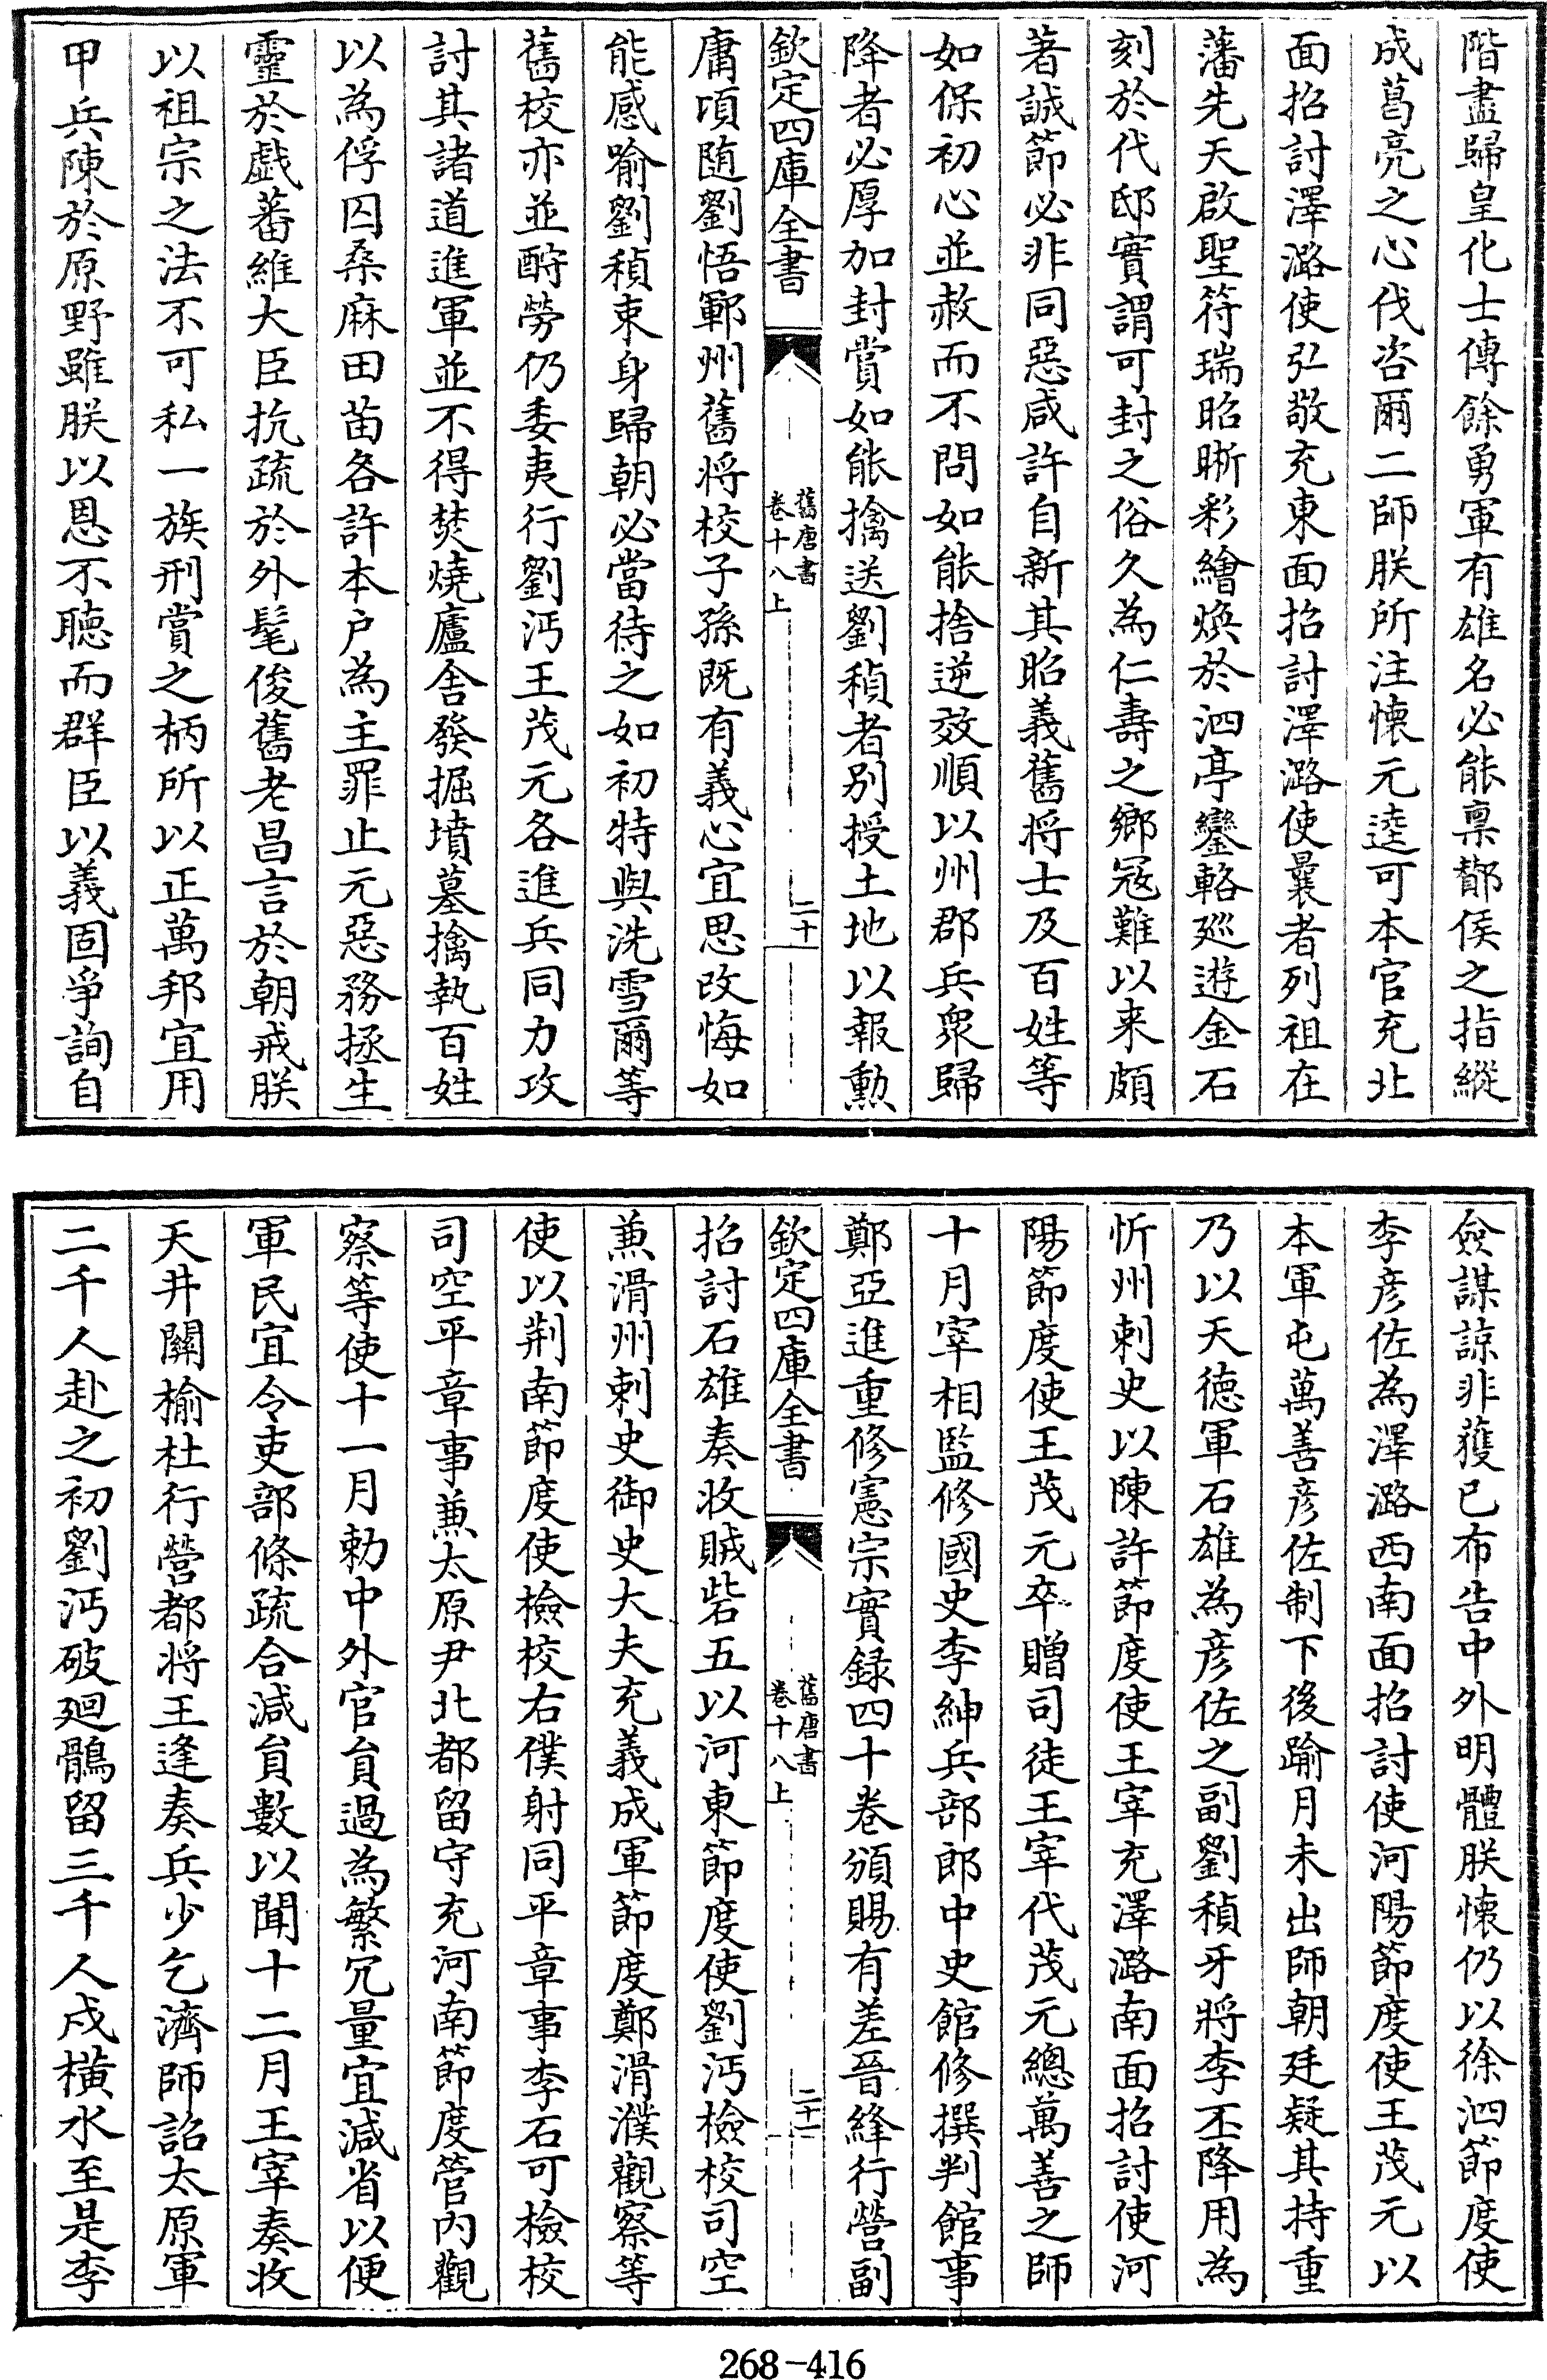 階盡歸皇化士傳餘勇軍有雄名必能禀鄼侯之指縱
成葛亮之心伐咨爾二師朕所注懐元逵可本官充北
面招討澤潞使弘敬充東面招討澤潞使曩者列祖在
藩先天啟聖符瑞昭晣彩繪煥於泗亭鑾輅廵遊金石
刻於代邸實謂可封之俗久為仁壽之鄉冦難以來頗
著誠節必非同惡咸許自新其昭義舊将士及百姓等
如保初心並赦而不問如能捨逆效順以州郡兵衆歸
降者必厚加封賞如能擒送劉稹者别授土地以報勲
欽定四庫全書
舊唐書
卷十八上
二十
庸頃随劉悟鄆州舊将校子孫既有義心宜思改悔如
能感喻劉稹束身歸朝必當待之如初特與洗雪爾等
舊校亦並酧勞仍委夷行劉沔王茂元各進兵同力攻
討其諸道進軍並不得焚燒廬舍發掘墳墓擒執百姓
以為俘囚桑麻田苗各許本户為主罪止元惡務拯生
靈於戯蕃維大臣抗疏於外髦俊舊老昌言於朝戒朕
以祖宗之法不可私一族刑賞之柄所以正萬邦宜用
甲兵陳於原野雖朕以恩不聴而群臣以義固爭詢自
僉謀諒非獲已布告中外明體朕懐仍以徐泗節度使
李彦佐為澤潞西南面招討使河陽節度使王茂元以
本軍屯萬善彦佐制下後踰月未出師朝廷疑其持重
乃以天徳軍石雄為彦佐之副劉稹牙將李丕降用為
忻州刺史以陳許節度使王宰充澤潞南面招討使河
陽節度使王茂元卒贈司徒王宰代茂元總萬善之師
十月宰相監修國史李紳兵部郎中史館修撰判館事
鄭亞進重修憲宗實録四十卷頒賜有差晉絳行營副
欽定四庫全書
舊唐書
卷十八上
二十一
招討石雄奏收賊砦五以河東節度使劉沔檢校司空
兼滑州刺史御史大夫充義成軍節度鄭滑濮觀察等
使以荆南節度使檢校右僕射同平章事李石可檢校
司空平章事兼太原尹北都留守充河南節度管内觀
察等使十一月勅中外官員過為繁冗量宜減省以便
軍民宜令吏部條疏合減員數以聞十二月王宰奏收
天井關榆社行營都将王逢奏兵少乞濟師詔太原軍
二千人赴之初劉沔破廻鶻留三千人戍横水至是李
268-416